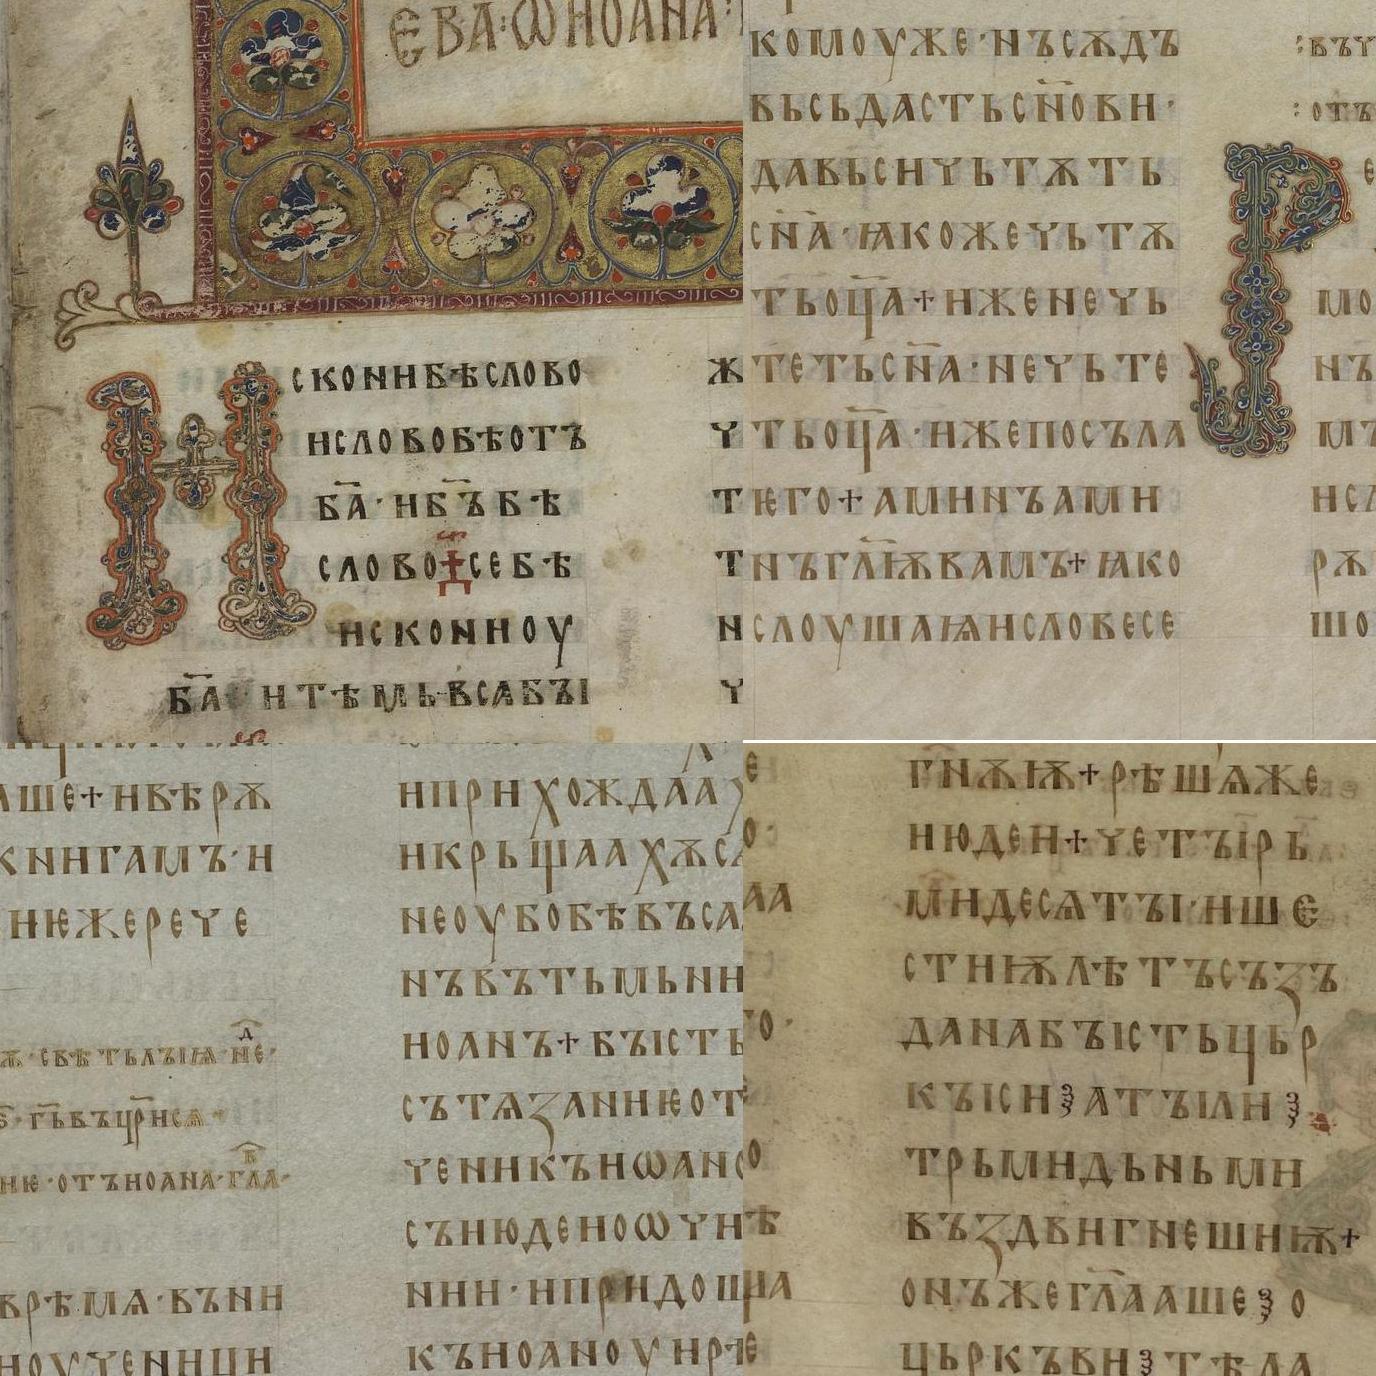 ЕВА:ѾИОАНА·
СКОНИБѢСЛОВО
ИСЛОВОБѢОТЪ
БА҃·ИБ҃ЪБѢ
СЛОВО СЕБѢ
ИСКОНИОУ
БА҃ ИТѢМЬВСꙖБЪІ
КОМОУЖЕ·НЪСѪДЪ
ВЬСЬДАСТЬСН҃ОВИ·
ДАВЬСИЧЬТѪТЬ
СН҃А·ꙖКОЖЕЧЬТѪ
ТЬОЦ҃А+ИЖЕНЕЧЬ
ТЕТЬСН҃А·НЕЧЬТЕ
ТЬОЦ҃А·ИЖЕПОСЪЛА
ѤГО+АМИНЪАМИ
НЪГЛ҃ѬВАМЪ+ꙖКО
СЛОУШАꙖИСЛОВЕСЕ
АШЕ+ИВѢРѪ
КНИГАМЪ·И
ИѤЖЕРЕЧЕ
СВѢТЬЛЪІꙖ·НЕ·
ГЬ҃ВЪЦР҃ИСѦ
ИѤ·ОТЪИОАНА·ГЛА·
ВРѢМѦ·ВЪНИ
ИОУЧЕНИЦИ
ИПРИХОЖДААХ
ИКРЬЩААХѪСѦ
НЕОУБОБѢВЪСА
НЪВЪТЬМЬНИ
ИОАНЪ+БЪІСТЬ
СЪТѦЗАНИѤОТ
ЧЕНИКЪИѠАНО
СЪИЮДЕИОѠЧИ
НИИ·ИПРИДОШ
КЪИОАНОУИРѢ
ГНИѪѬ+РѢШѦЖЕ
ИЮДЕИ+ЧЕТЪІРЬ
МИДЕСѦТЪІ·ИШЕ
СТИѬЛѢТЪСЪЗЪ
ДАНАБЪІСТЬЦЬР
КЪІСИ АТЪІЛИ
ТРЬМИДЬНЬМИ
ВЪЗДВИГНЕШИѬ+
ОНЪЖЕГЛ҃ААШЕ О
ЦЬРКЪВИ ТѢЛА